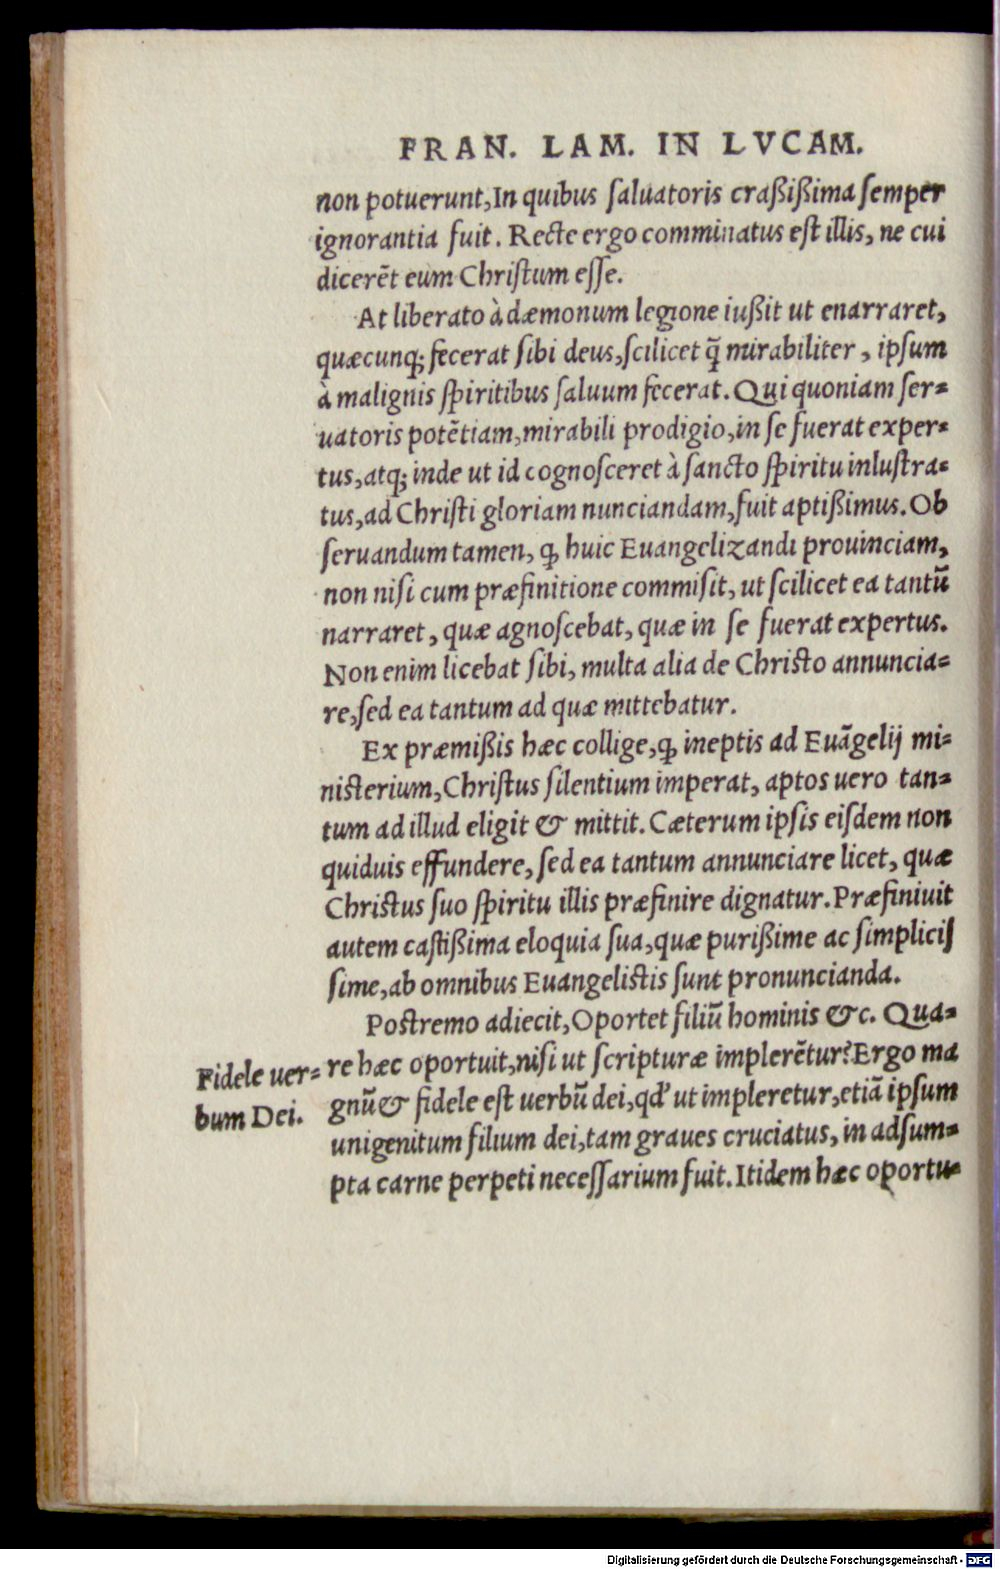 FRAN. LAM. IN LVCAM.
non potuerunt, In quibus ſaluatoris craßißima ſemper
ignorantia fuit. Recte ergo comminatus eſt illis, ne cui
dicerẽt eum Chriſtum eſſe.
At liberato à dæmonum legione iußit ut enarraret,
quæcunq; fecerat ſibi deus, ſcilicet q̃ mirabiliter, ipſum
à malignis ſpiritibus ſaluum fecerat. Qui quoniam ſer-
uatoris potẽtiam, mirabili prodigio, in ſe fuerat exper-
tus, atq; inde ut id cognoſceret à ſancto ſpiritu inluſtra-
tus, ad Chriſti gloriam nunciandam, fuit aptißimus. Ob
ſeruandum tamen, ꝙ huic Euangelizandi prouinciam,
non niſi cum præfinitione commiſit, ut ſcilicet ea tantũ
narraret, quæ agnoſcebat, quæ in ſe fuerat expertus.
Non enim licebat ſibi, multa alia de Chriſto annuncia-
re, ſed ea tantum ad quæ mittebatur.
Ex præmißis hæc collige, ꝙ ineptis ad Euãgelij mi-
niſterium, Chriſtus ſilentium imperat, aptos uero tan-
tum ad illud eligit & mittit. Cæterum ipſis eiſdem non
quiduis effundere, ſed ea tantum annunciare licet, quæ
Chriſtus ſuo ſpiritu illis præfinire dignatur. Præfiniuit
autem caſtißima eloquia ſua, quæ purißime ac ſimpliciſ
ſime, ab omnibus Euangeliſtis ſunt pronuncianda.
Poſtremo adiecit, Oportet filiũ hominis &c. Qua-
re hæc oportuit, niſi ut ſcripturæ implerẽtur? Ergo ma
gnũ & fidele eſt uerbũ dei, qđ ut impleretur, etiã ipſum
unigenitum filium dei, tam graues cruciatus, in adſum-
pta carne perpeti neceſſarium fuit. Itidem hæc oportu-
Fidele uer-
bum Dei.
Digitalisierung gefördert durch die Deutsche Forschungsgemeinschaft - DFG